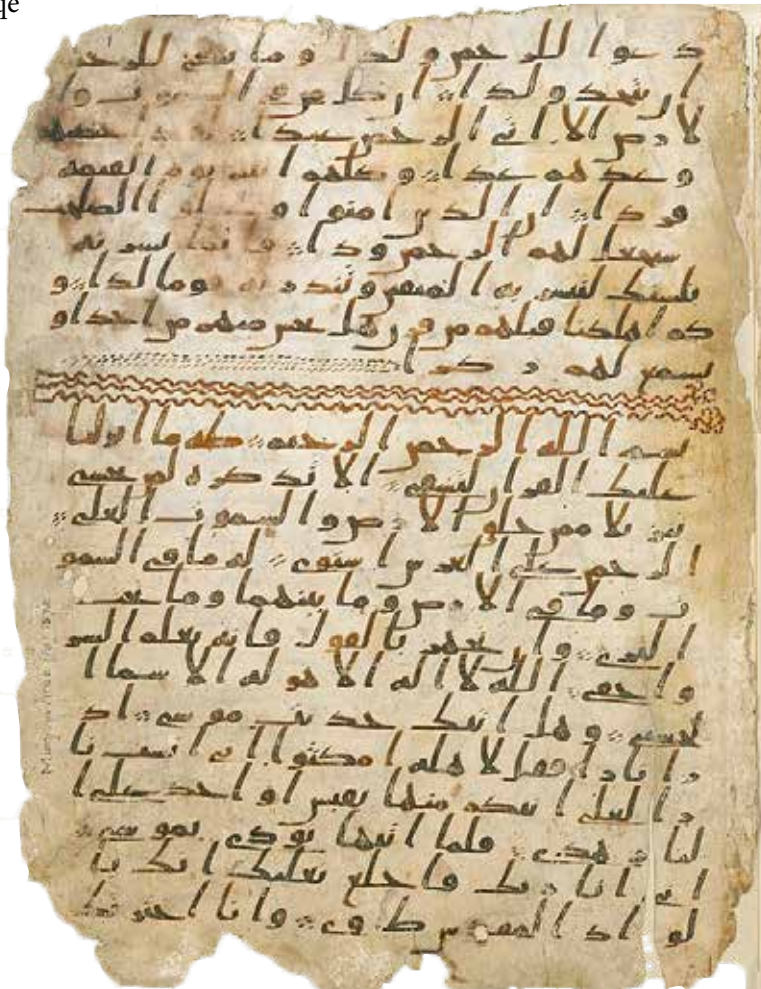 qe
دعوا للرحمن ولدا وما ينبغي للرحمن
ان يتخذ ولدا ان كل من في السموت وا
لارض الا اتي الرحمن عبدا لقد احصيهم
وعدهم عدا وكلهم اتيه يوم القيمة
فردا ان الذين امنوا وعملوا الصلحت
سيجعل لهم الرحمن ودا فانما يسرنه
بلسنك لتبشر به المتقين وتنذر به قوما لدا و
كم اهلكنا قبلهم من قرن هل تحس منهم من احد او
تسمع لهم ركزا
بسم الله الرحمن الرحيم طه ما انزلنا
عليك القران لتشقى الا تذكرة لمن يخشى
تنزيلا ممن خلق الارض والسموت العلى
الرحمن على العرش استوى له ما في السمو
ت وما في الارض وما بينهما وما تحت
الثرى وان تجهر بالقول فانه يعلم السر
واخفى الله لا اله الا هو له الاسما ا
لحسنى وهل اتيك حديث موسى اذ
را نارا فقل لاهله امكثوا اني انست نا
را لعلي اتيكم منها بقبس او اجد على ا
لنار هدى فلما اتيها نودي يموسى
اني انا ربك فاخلع نعليك انك با
لواد المقدس طوى وانا اخترتك